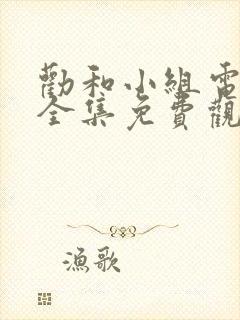 勸和小組電
全集免費觀
漁歌